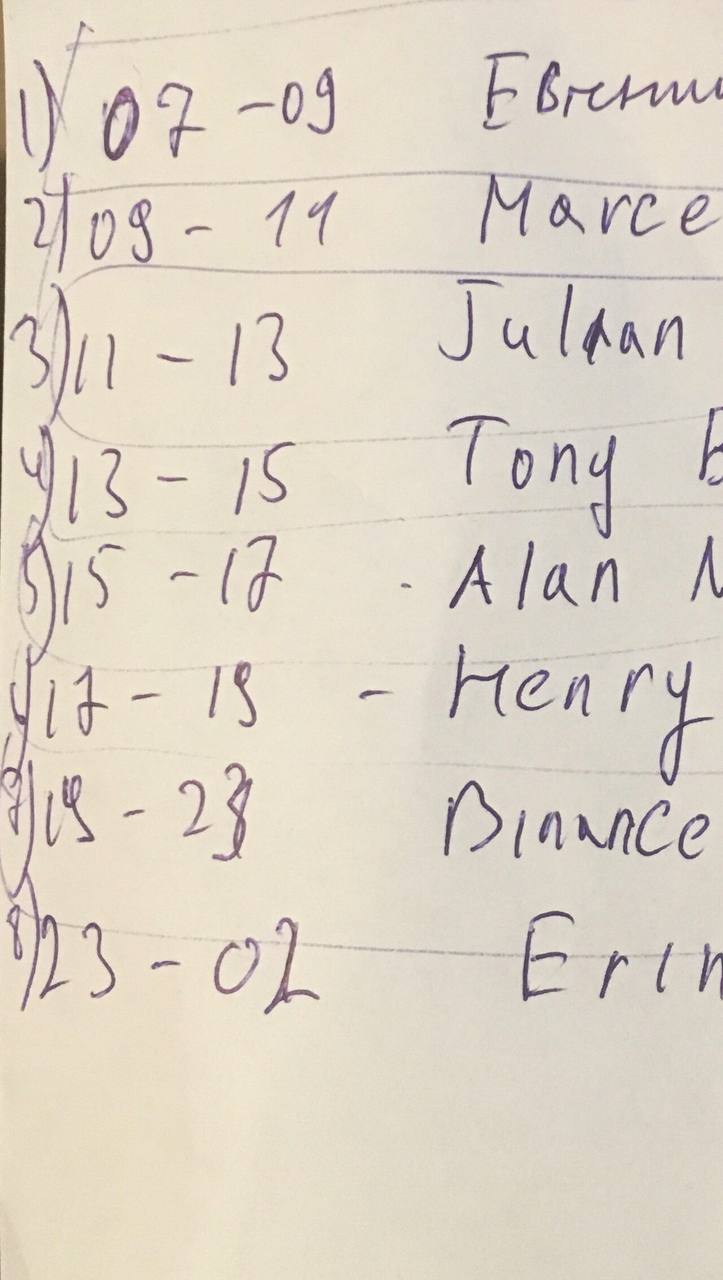 1) 07 - 09 Евгени
2) 09 - 11 Marce
3) 11 - 13 Julian
4) 13 - 15 Tony
5) 15 - 17 - Alan
17 - 19 - Henry
7) 19 - 23 Binance
8) 23 - 02 Erin